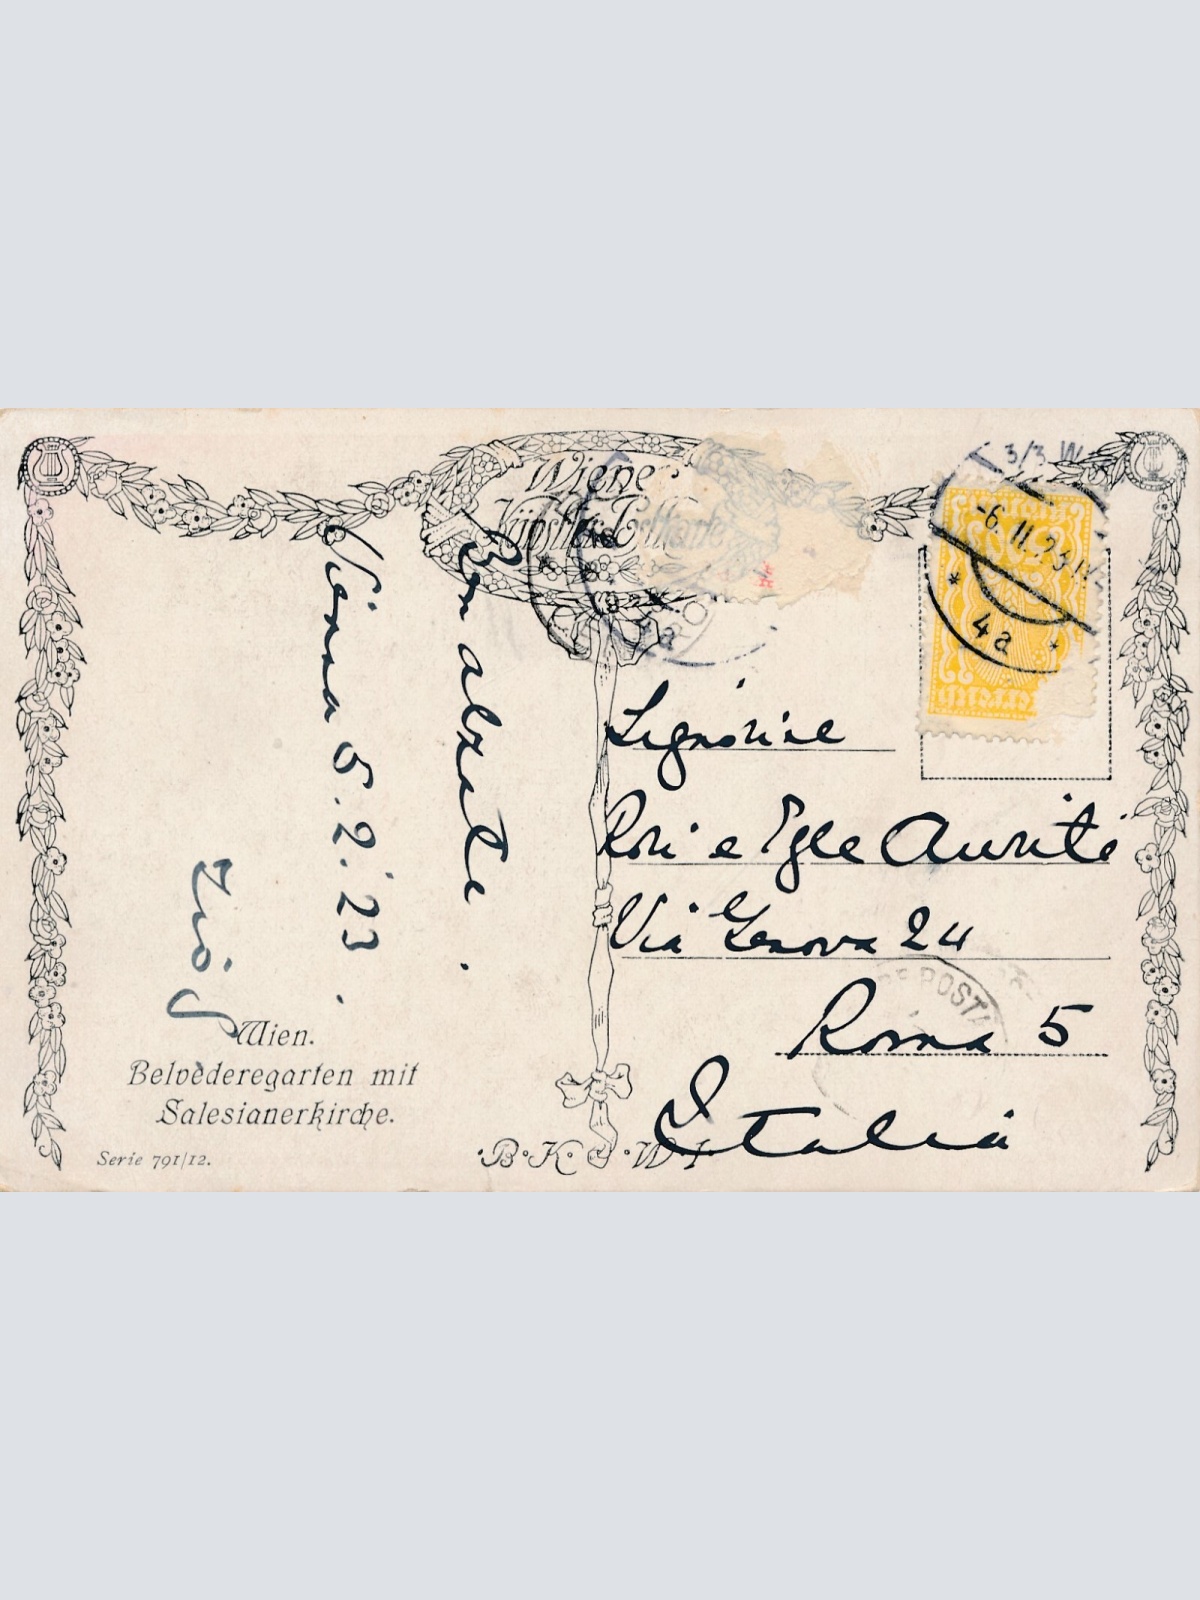 Wiener
Künstler-Postkarte
3/3 W
-6.II.23
* 4a *
Ben alzate.
Vienna 5.2.23.
Signorine
Rori e Egle
Via Genova 24
Roma 5
Italia
POSTA
Wien.
Belvederegarten mit
Salesianerkirche.
Serie 791/12.
·B·K·W·I·